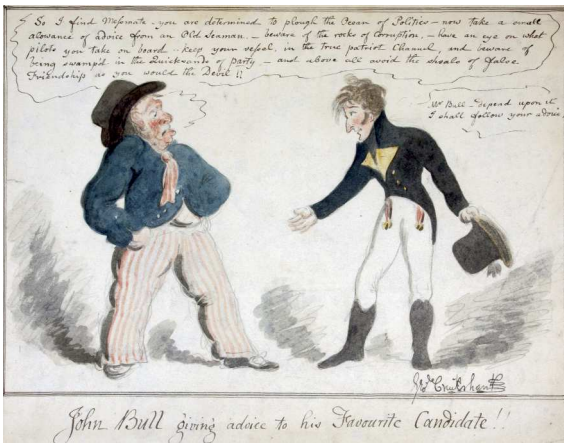 So I find Messmate - you are determined to plough the Ocean of Politics - now take a small
alowance of advice from an Old Seaman. - beware of the rocks of Corruption, - have an eye on what
pilots you take on board - keep your vessel, in the true patriot Channel, and beware of
being swamp'd in the Quicksands of party - and above all avoid the shoals of false
Friendship as you would the Devil !!
Mr Bull - depend upon it
I shall follow your advice,
Cruikshank
John Bull giving advice to his Favourite Candidate!!